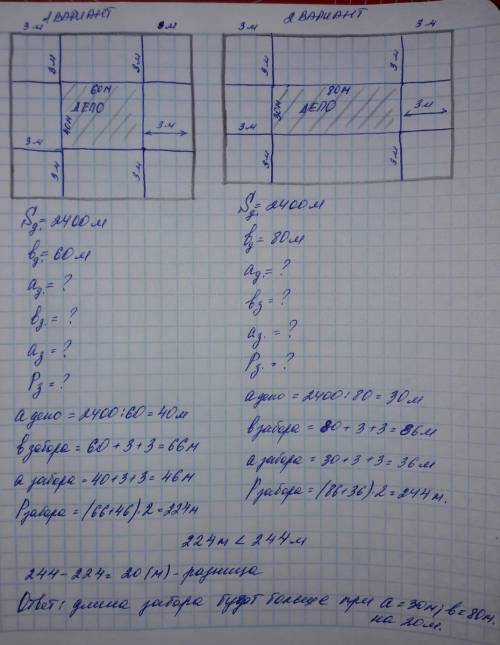 1 ВАРИАНТ
3 м
3 м
3 м
3 м
60м
ДЕПО
40м
3 м
3 м
3 м
3 м
2 ВАРИАНТ
3 м
3 м
3 м
3 м
80м
ДЕПО
30м
3 м
3 м
3 м
3 м
Sд. = 2400м
вд. = 60м
ад. = ?
вз. = ?
аз = ?
Рз = ?
а депо = 2400:60 = 40м
в забора = 60 + 3 + 3 = 66м
а забора = 40+3+3 = 46м
Рзабора = (66+46)·2 = 224м
Sд. = 2400м
вд = 80м
ад. = ?
вз = ?
аз. = ?
Рз. = ?
а депо = 2400:80 = 30м
в забора = 80 + 3 + 3 = 86м
а забора = 30 + 3 + 3 = 36м
Рзабора = (86+36)·2 = 244м.
224м < 244м
244 - 224 = 20 (м) - разница
Ответ: длина забора будет больше при а = 30м, в = 80м.
на 20м.